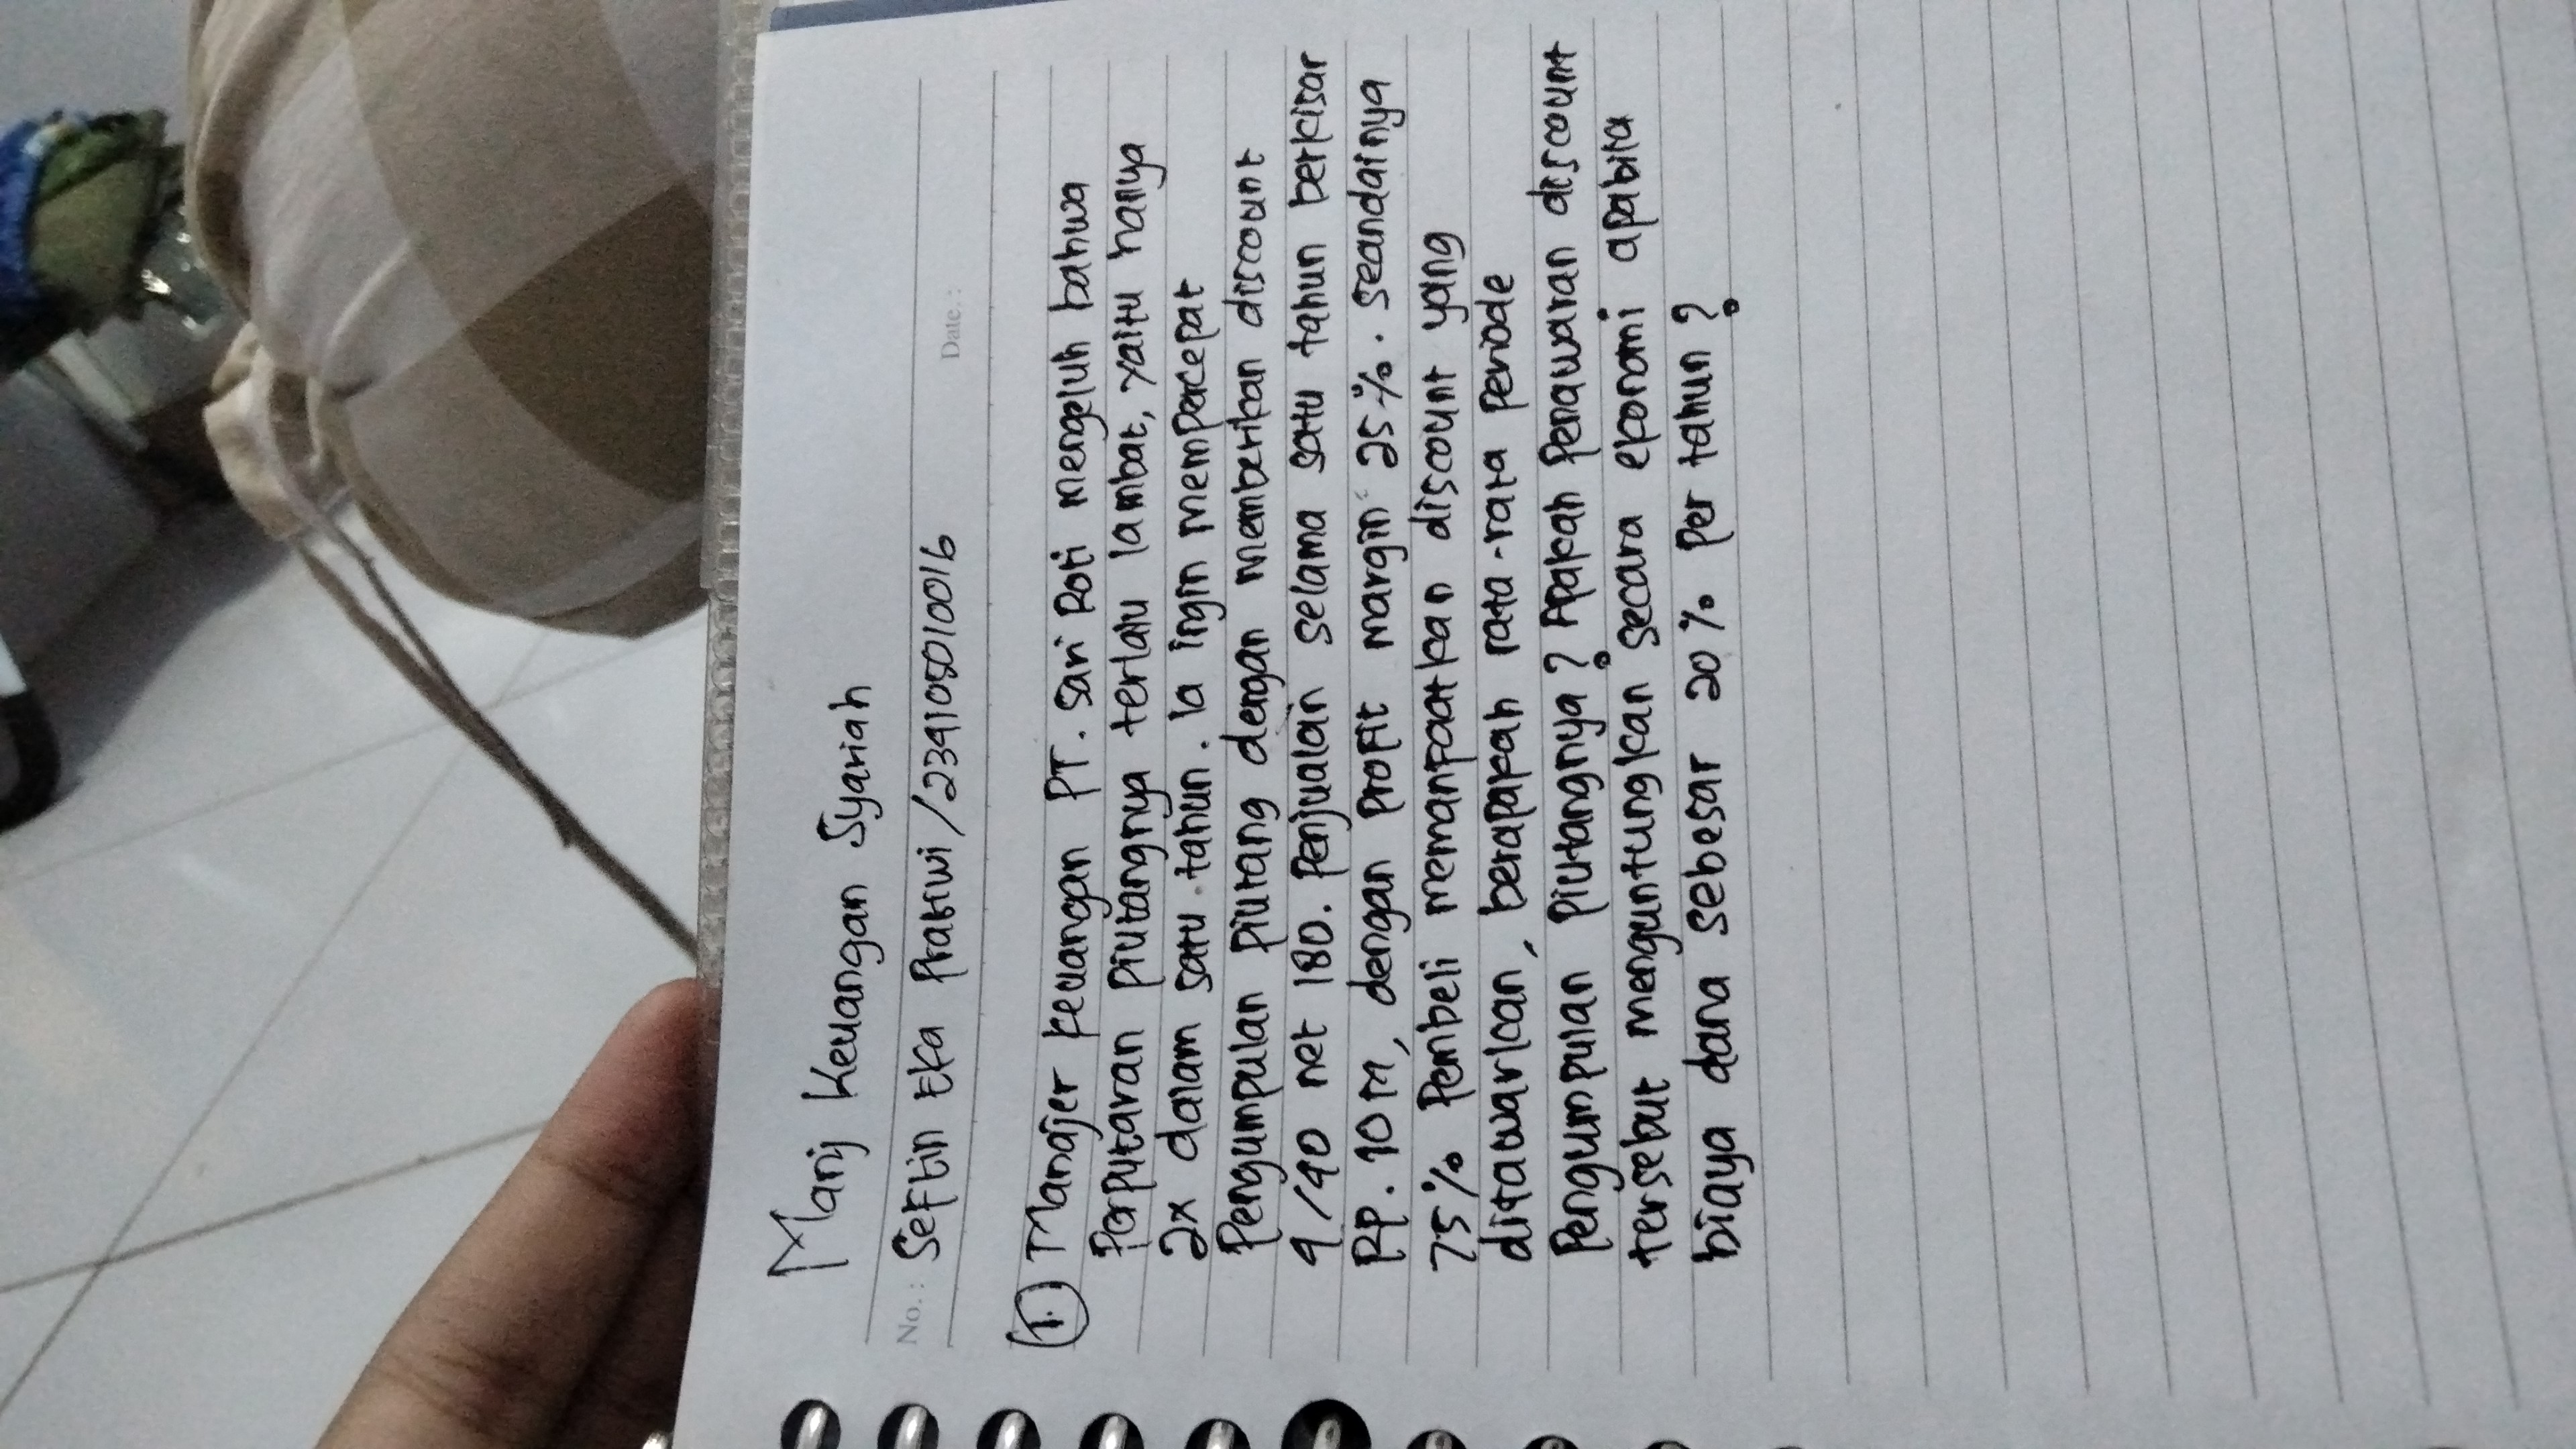 Manj Keuangan Syariah
No.: Seftin Eka Pratiwi /2341050100016
Date.:
1. Manajer keuangan PT. Sari Roti mengeluh bahwa
Perputaran Piutangnya terlalu lambat, yaitu hanya
2x dalam satu tahun. Ia ingin mempercepat
Pengumpulan Piutang dengan memberikan discount
9/40 net 180. Penjualan selama satu tahun berkisar
RP. 10 M, dengan Profit margin 25%. Seandainya
75% Pembeli memanfaatkan discount yang
ditawarkan, berapakah rata-rata Periode
Pengumpulan Piutangnya? Apakah Penawaran discount
tersebut menguntungkan secara ekonomi apabila
biaya dana sebesar 20% Per tahun?